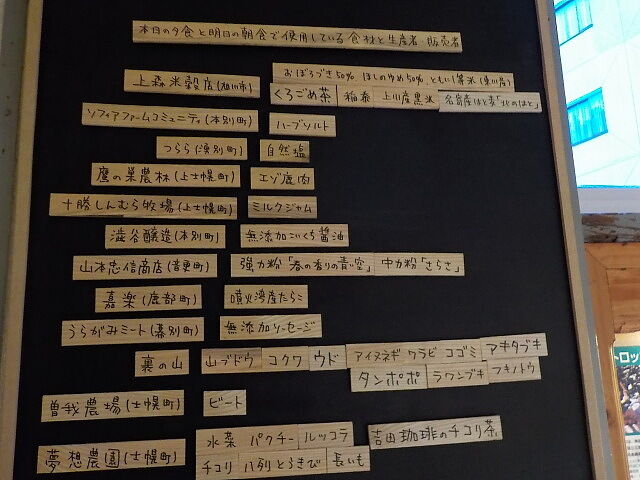 本日の夕食と明日の朝食で使用している食材と生産者・販売者
上森米穀店(旭川市) おぼろづき50% ほしのゆめ50% ともに1等米(東川産)
くろごめ茶 稲泰 上川産黒米 名寄産はと麦「北のはと」
ソフィアファームコミュニティ(本別町) ハーブソルト
つらら(湧別町) 自然塩
鷹の巣農林(上士幌町) エゾ鹿肉
十勝しんむら牧場(上士幌町) ミルクジャム
澁谷醸造(本別町) 無添加こいくち醤油
山本忠信商店(音更町) 強力粉「春の香りの青い空」 中力粉「きらきら」
嘉楽(鹿部町) 噴火湾産たらこ
うらがみミート(幕別町) 無添加ソーセージ
裏の山 山ブドウ コクワ ウド アイヌネギ ワラビ コゴミ アキタブキ
タンポポ ラワンブキ フキノトウ
曽我農場(士幌町) ビート
夢想農園(士幌町) 水菜 パクチー ルッコラ 吉田珈琲のチコリ茶
チコリ 八列とうきび 長いも
トロッ